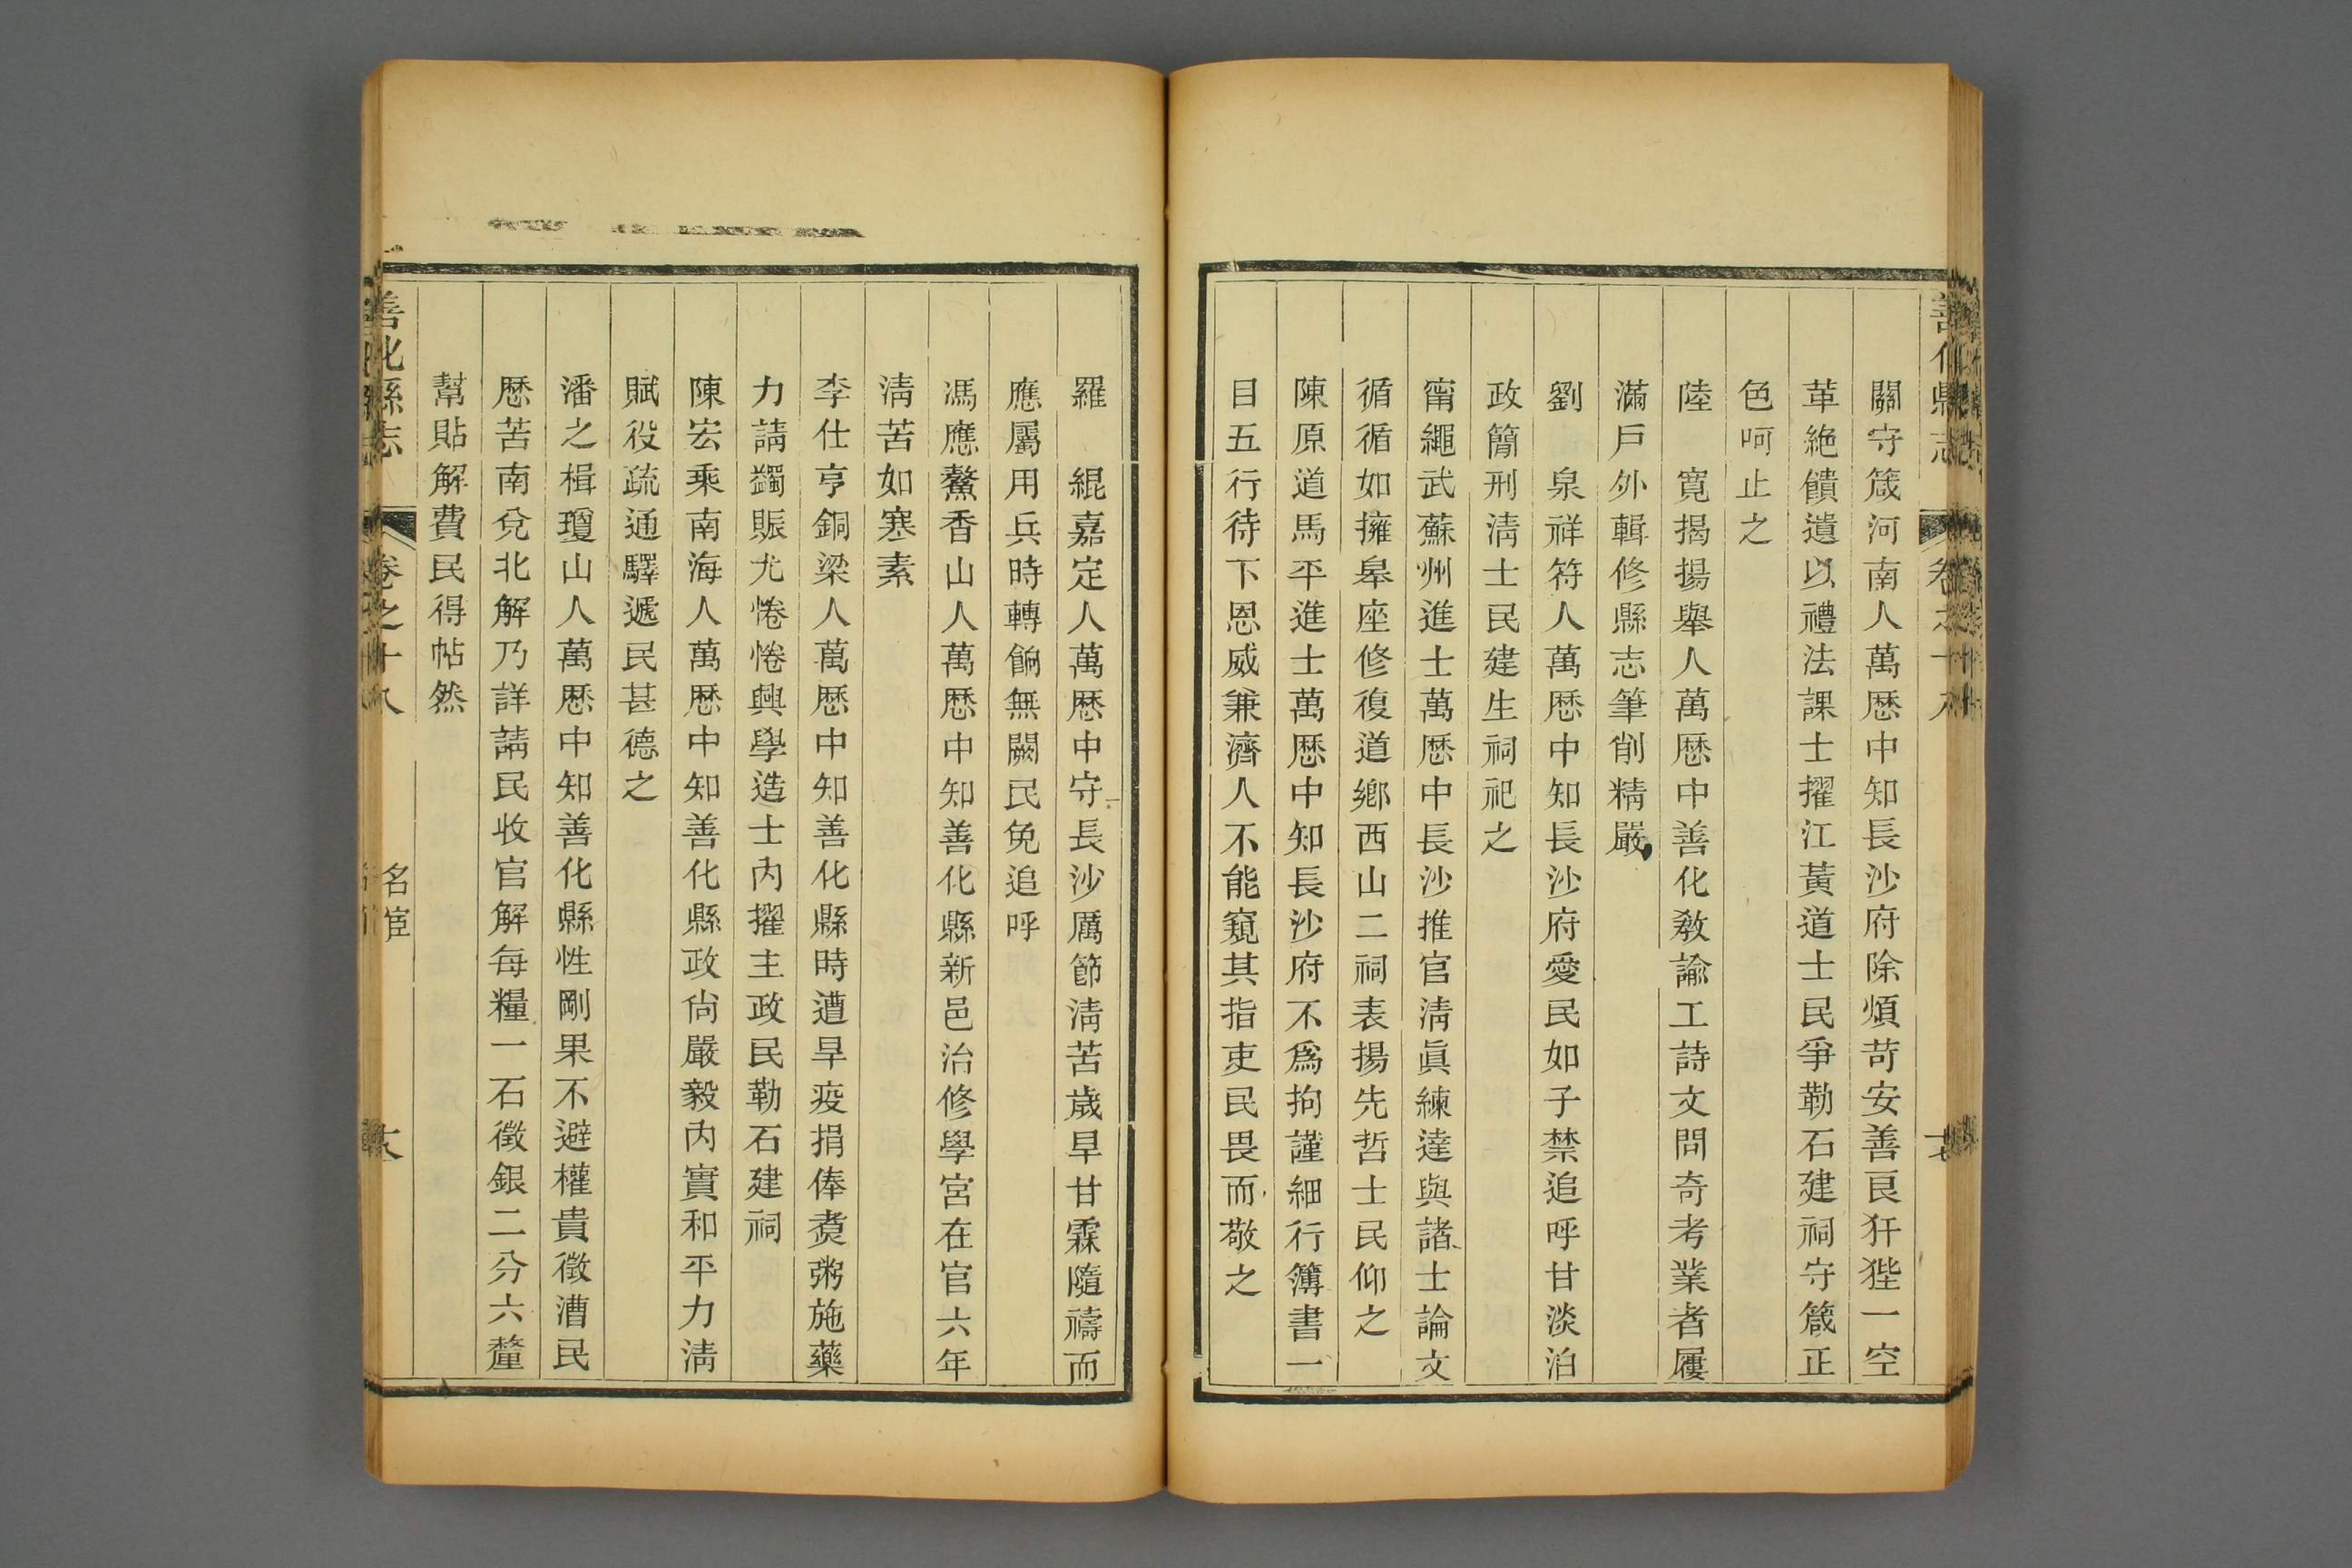 善化縣志
卷之十八
十七
關守箴河南人萬歷中知長沙府除煩苛安善良犴狴一空
革絶饋遺以禮法課士擢江黃道士民爭勒石建祠守箴正
色呵止之
陸　寛揭揚舉人萬歷中善化教諭工詩文問奇考業者屨
滿戶外輯修縣志筆削精嚴
劉　泉祥符人萬歷中知長沙府愛民如子禁追呼甘淡泊
政簡刑淸士民建生祠祀之
甯繩武蘇州進士萬歷中長沙推官淸眞練達與諸士論文
循循如擁皋座修復道鄉西山二祠表揚先哲士民仰之
陳原道馬平進士萬歷中知長沙府不爲拘謹細行簿書一
目五行待下恩威兼濟人不能窺其指吏民畏而敬之
羅　緄嘉定人萬歷中守長沙厲節淸苦歲旱甘霖隨禱而
應屬用兵時轉餉無闕民免追呼
馮應鰲香山人萬歷中知善化縣新邑治修學宮在官六年
淸苦如寒素
李仕亨銅梁人萬歷中知善化縣時遭旱疫捐俸煑粥施藥
力請蠲賑尤惓惓興學造士內擢主政民勒石建祠
陳宏乘南海人萬歷中知善化縣政尙嚴毅內實和平力淸
賦役疏通驛遞民甚德之
潘之楫瓊山人萬歷中知善化縣性剛果不避權貴徵漕民
歷苦南兌北解乃詳請民收官解每糧一石徵銀二分六釐
幫貼解費民得帖然
善化縣志
卷之十八
名宦
十八